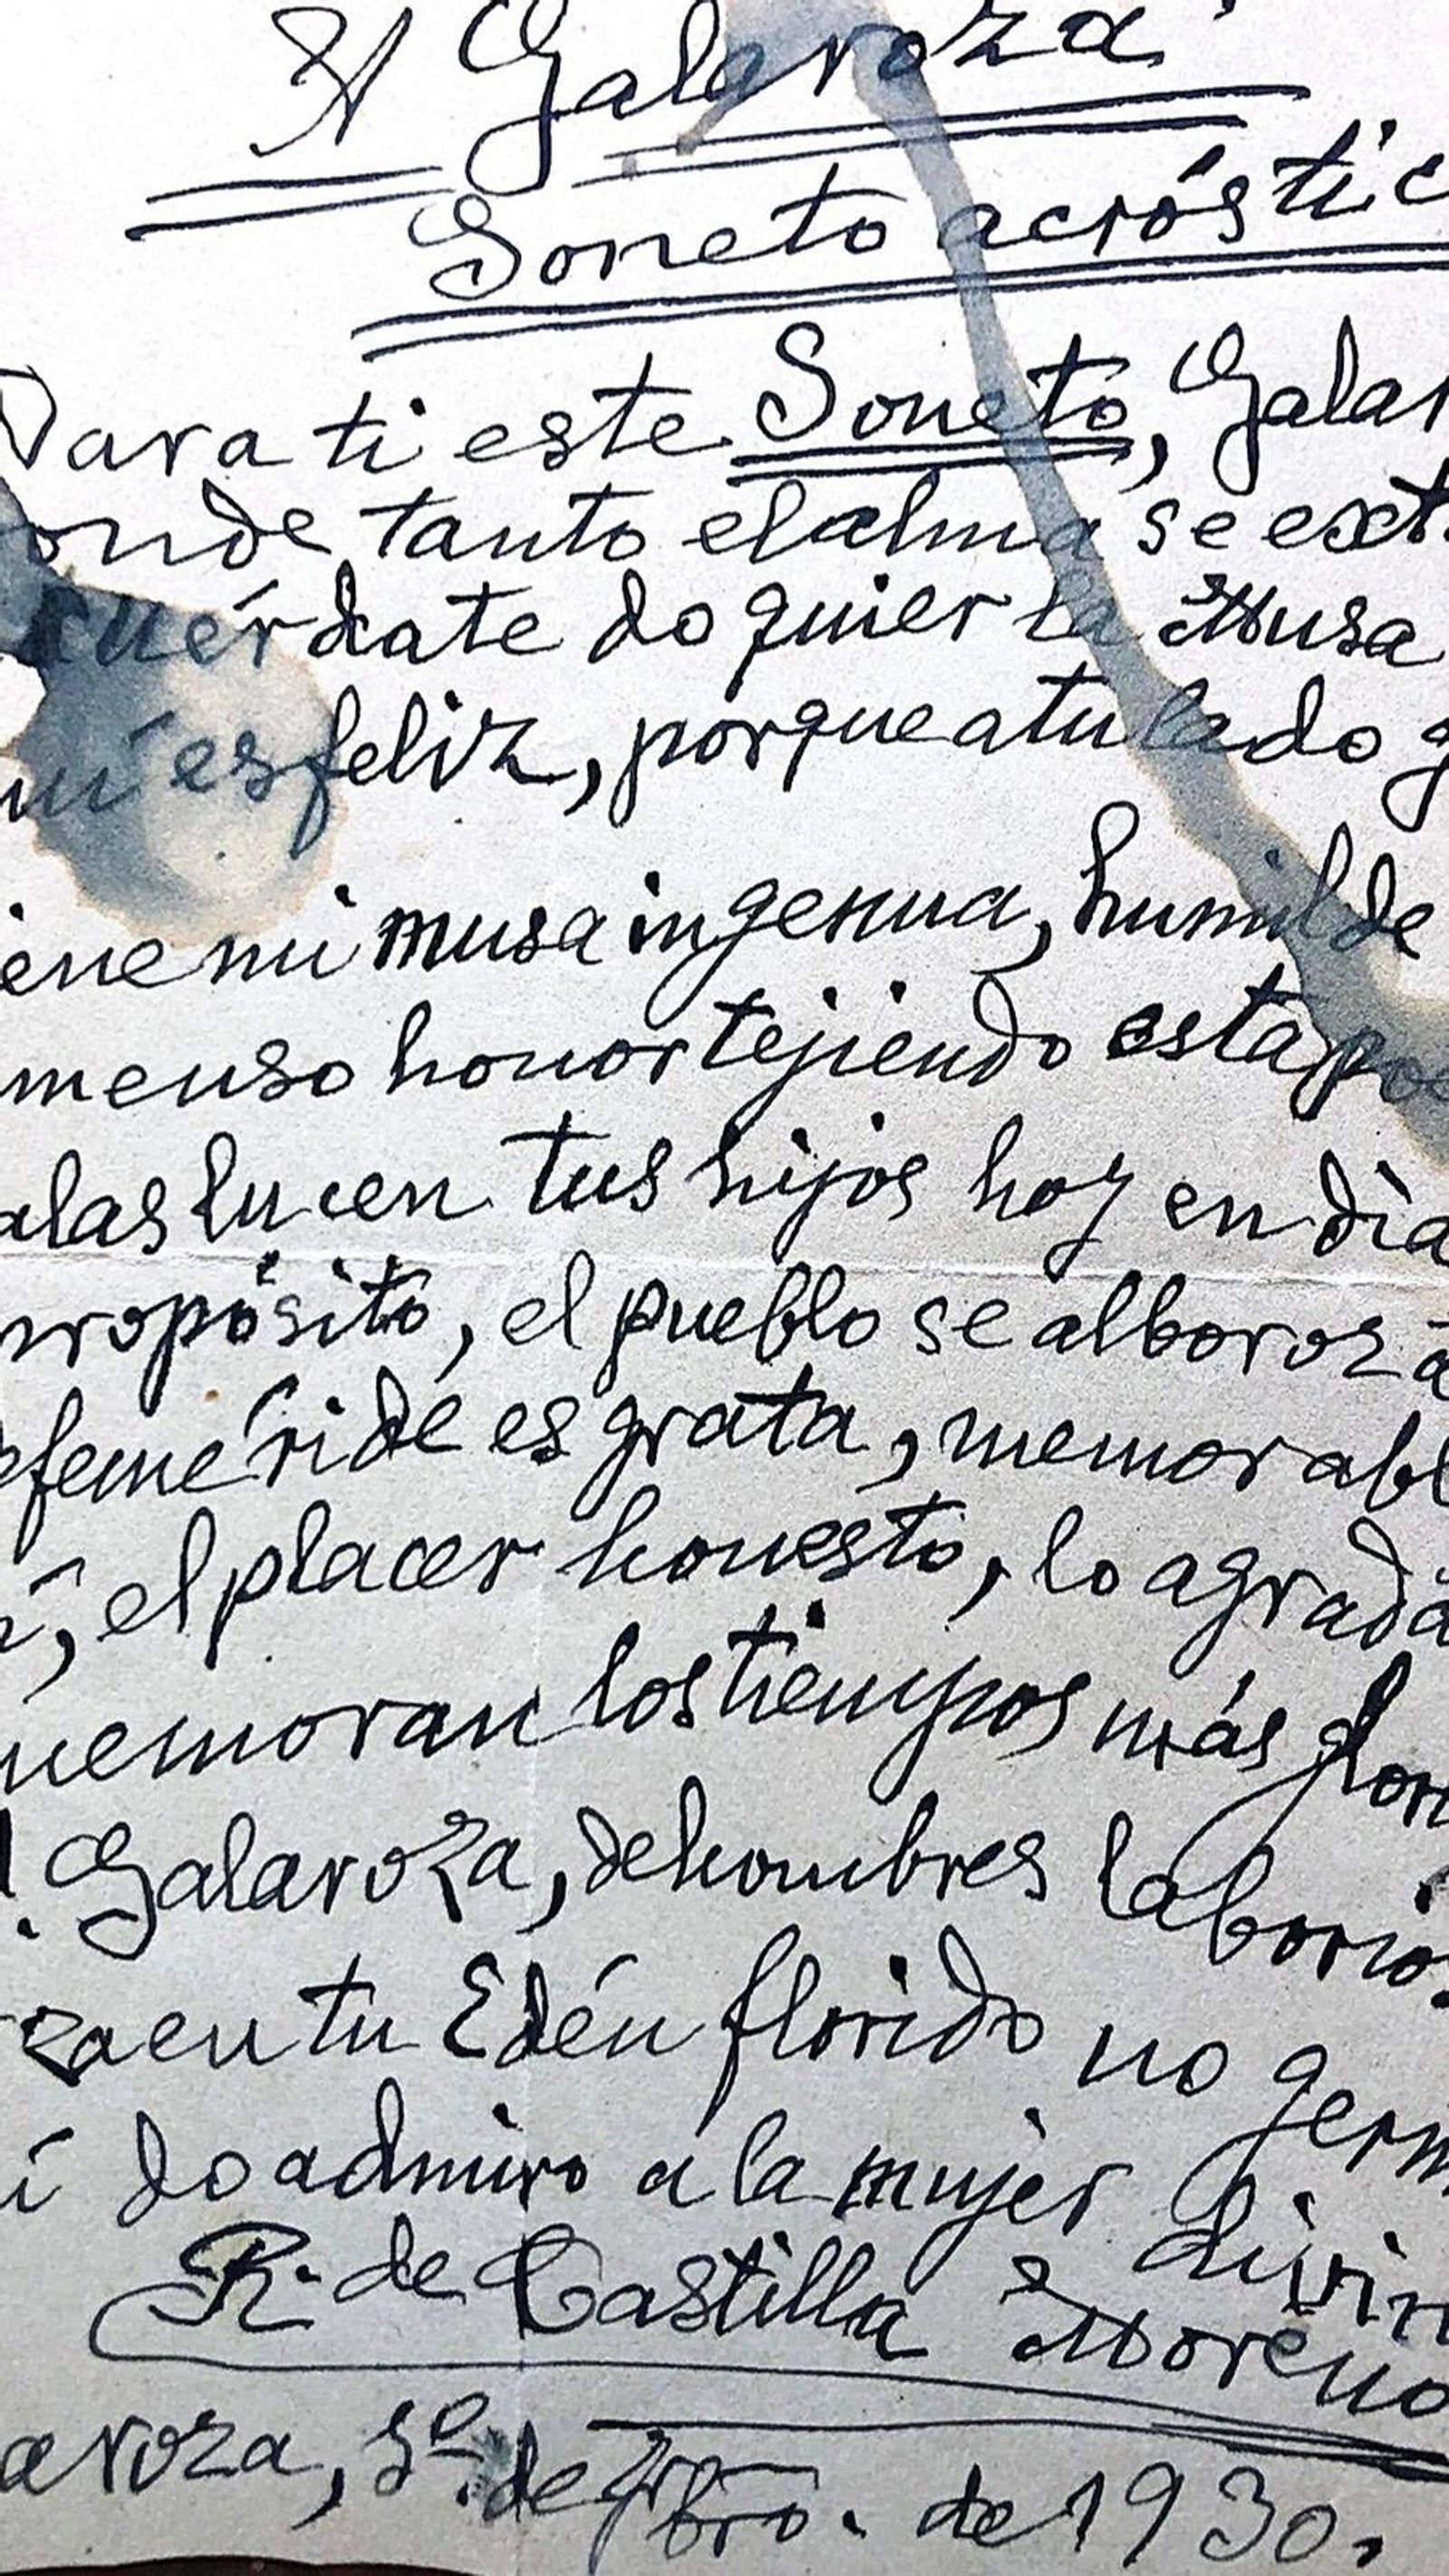 A Galaroza
Soneto acróstic
Para ti este Soneto, Galar
onde tanto el alma se ext
cuérdate do quier la Musa
uí es feliz, porque a tu lado g
ene mi musa ingenua, humilde
menso honor tejiendo esta poe
alas lucen tus hijos hoy en día
propósito, el pueblo se alboroza
efeméride es grata, memorabl
í, el placer honesto, lo agrada
nemoran los tiempos más glori
! Galaroza, de hombres laborio
za en tu Edén florido no germ
í do admiro a la mujer divin
R. de Castilla Moreno
aroza, de de 1930.